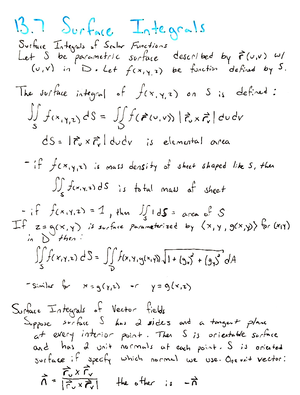 13.7 Surface Integrals
Surface Integrals of Scalar Functions
Let S be parametric surface described by r⃗(u,v) w/
(u,v) in D. Let f(x,y,z) be function defined by S.
The surface integral of f(x,y,z) on S is defined:
∬_S f(x,y,z) dS = ∬_D f(r⃗(u,v)) |r⃗_u × r⃗_v| du dv
dS = |r⃗_u × r⃗_v| du dv is elemental area
- if f(x,y,z) is mass density of sheet shaped like S, then
∬_S f(x,y,z) dS is total mass of sheet
- if f(x,y,z) = 1, then ∬_S 1 dS = area of S
If z = g(x,y) is surface parameterized by (x, y, g(x,y)) for (x,y)
in D then:
∬_S f(x,y,z) dS = ∬_D f(x,y,g(x,y)) √(1 + (g_x)² + (g_y)²) dA
- similar for x = g(y,z) or y = g(x,z)
Surface Integrals of Vector fields
Suppose surface S has 2 sides and a tangent plane
at every interior point. Then S is orientable surface
and has 2 unit normals at each point. S is oriented
surface if specify which normal we use. One unit vector:
n⃗ = (r⃗_u × r⃗_v) / |r⃗_u × r⃗_v| the other is -n⃗